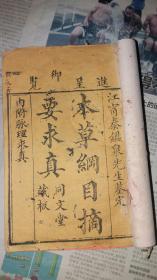 進呈御覽
江甯秦鏡泉先生鑒定
本草綱目摘
要求真
同文堂
藏板
內附脉理求真